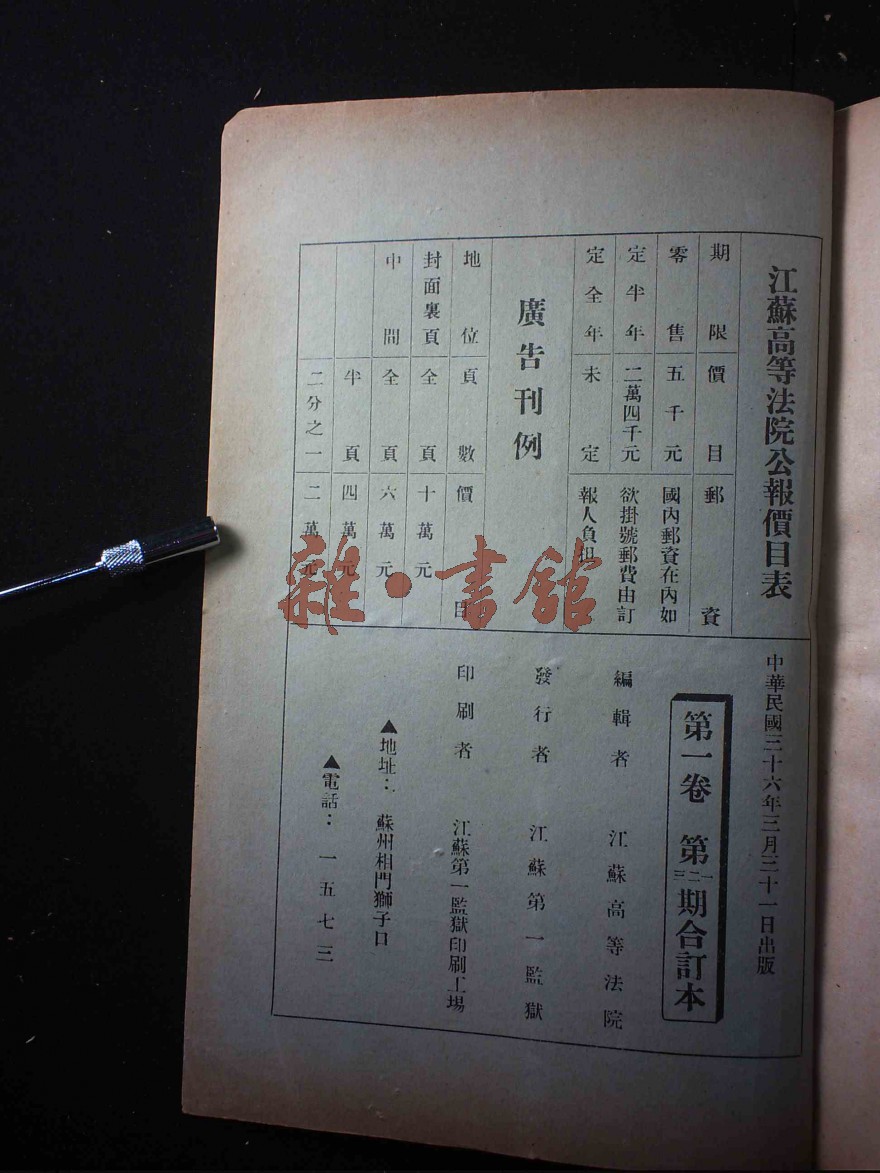 江蘇高等法院公報價目表
期限 價目 郵資
零售 五千元 國內郵資在內如
定半年 二萬四千元 欲掛號郵費由訂
定全年 未定 報人負担
廣告刊例
地位 頁數 價目
封面裏頁 全頁 十萬元
中間 全頁 六萬元
半頁 四萬元
二分之一 二萬元
中華民國三十六年三月三十一日出版
第一卷 第一二三期合訂本
編輯者 江蘇高等法院
發行者 江蘇第一監獄
印刷者 江蘇第一監獄印刷工場
▲地址：蘇州相門獅子口
▲電話：一五七三
雜·書館